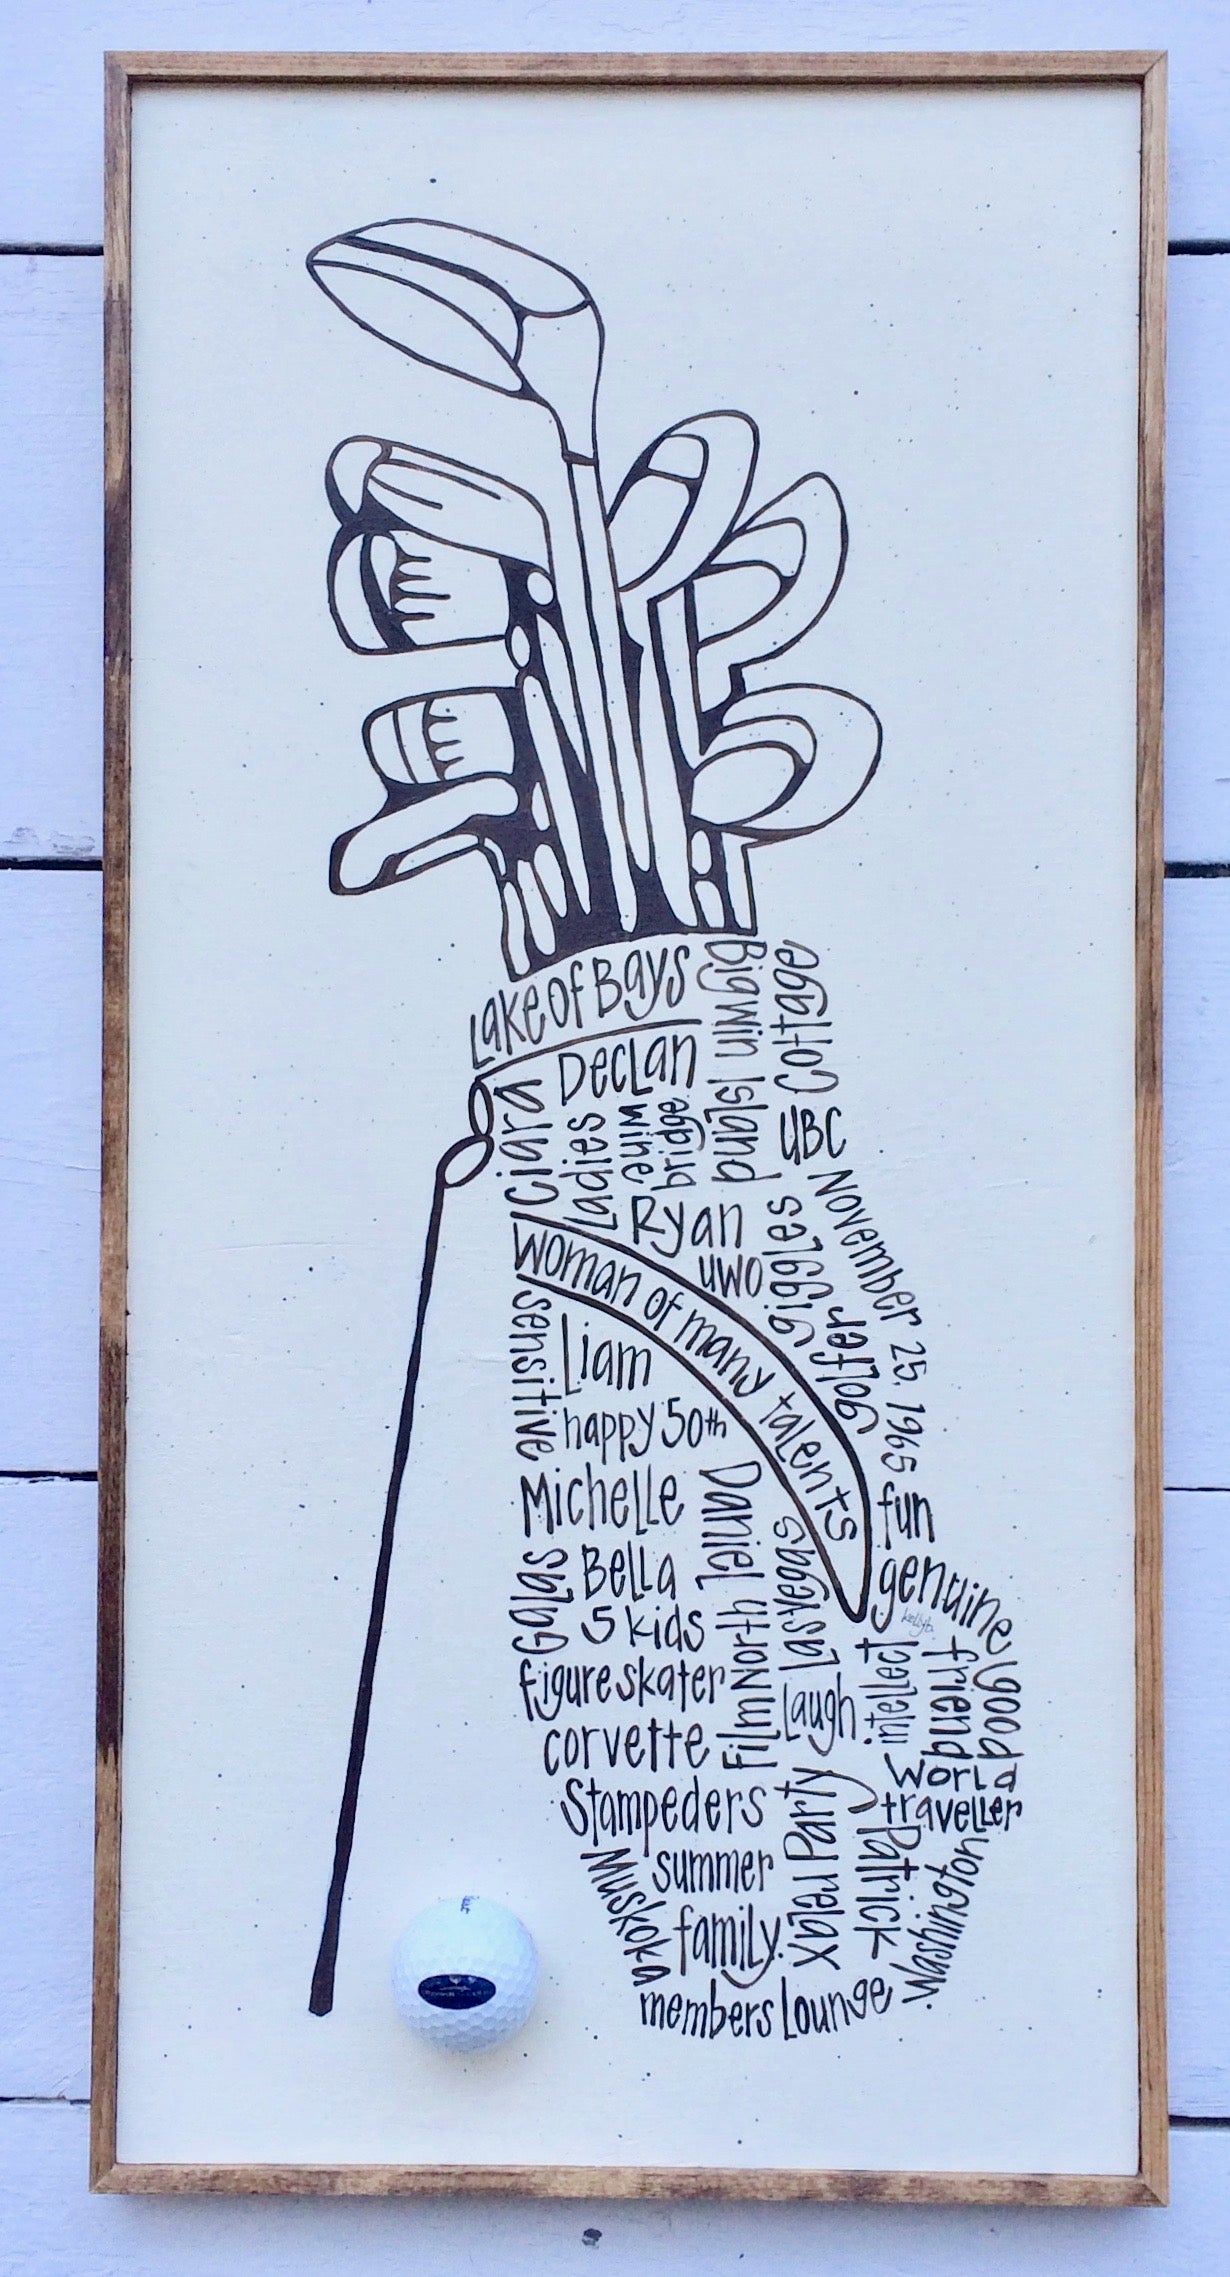 Lake of Bays
Bigwin Island
Cottage
Declan
Ciara
Ladies
wine
bridge
UBC
Ryan
uwo
giggles
November 25, 1965
golfer
woman of many talents
sensitive
Liam
happy 50th
Michelle
Daniel
fun
genuine
kellyb.
Galas
Bella
5 kids
Las Vegas
figure skater
Film North
Laugh
intellect
friend
good
corvette
World
traveller
Stampeders
Party
Patrick
Washington
summer
Muskoka
family
relax
members Lounge